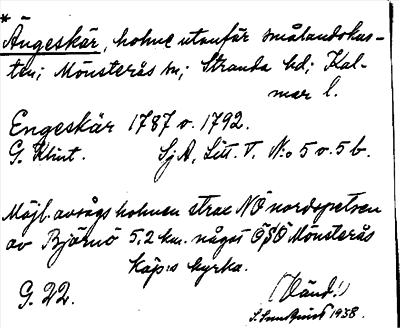 *
Ängeskär, holme utanför smålandskus-
ten; Mönsterås sn; Stranda hd; Kal-
mar l.
Engeskär 1787 o. 1792.
G. Klint. SjA, Litt. T. N:o 5 o. 5 b.
Möjl. avsågs holmen strax NÖ nordspetsen
av Björnö 5,2 km. något ÖSÖ Mönsterås
köp:s kyrka.
G. 22. (Vänd!)
1938.